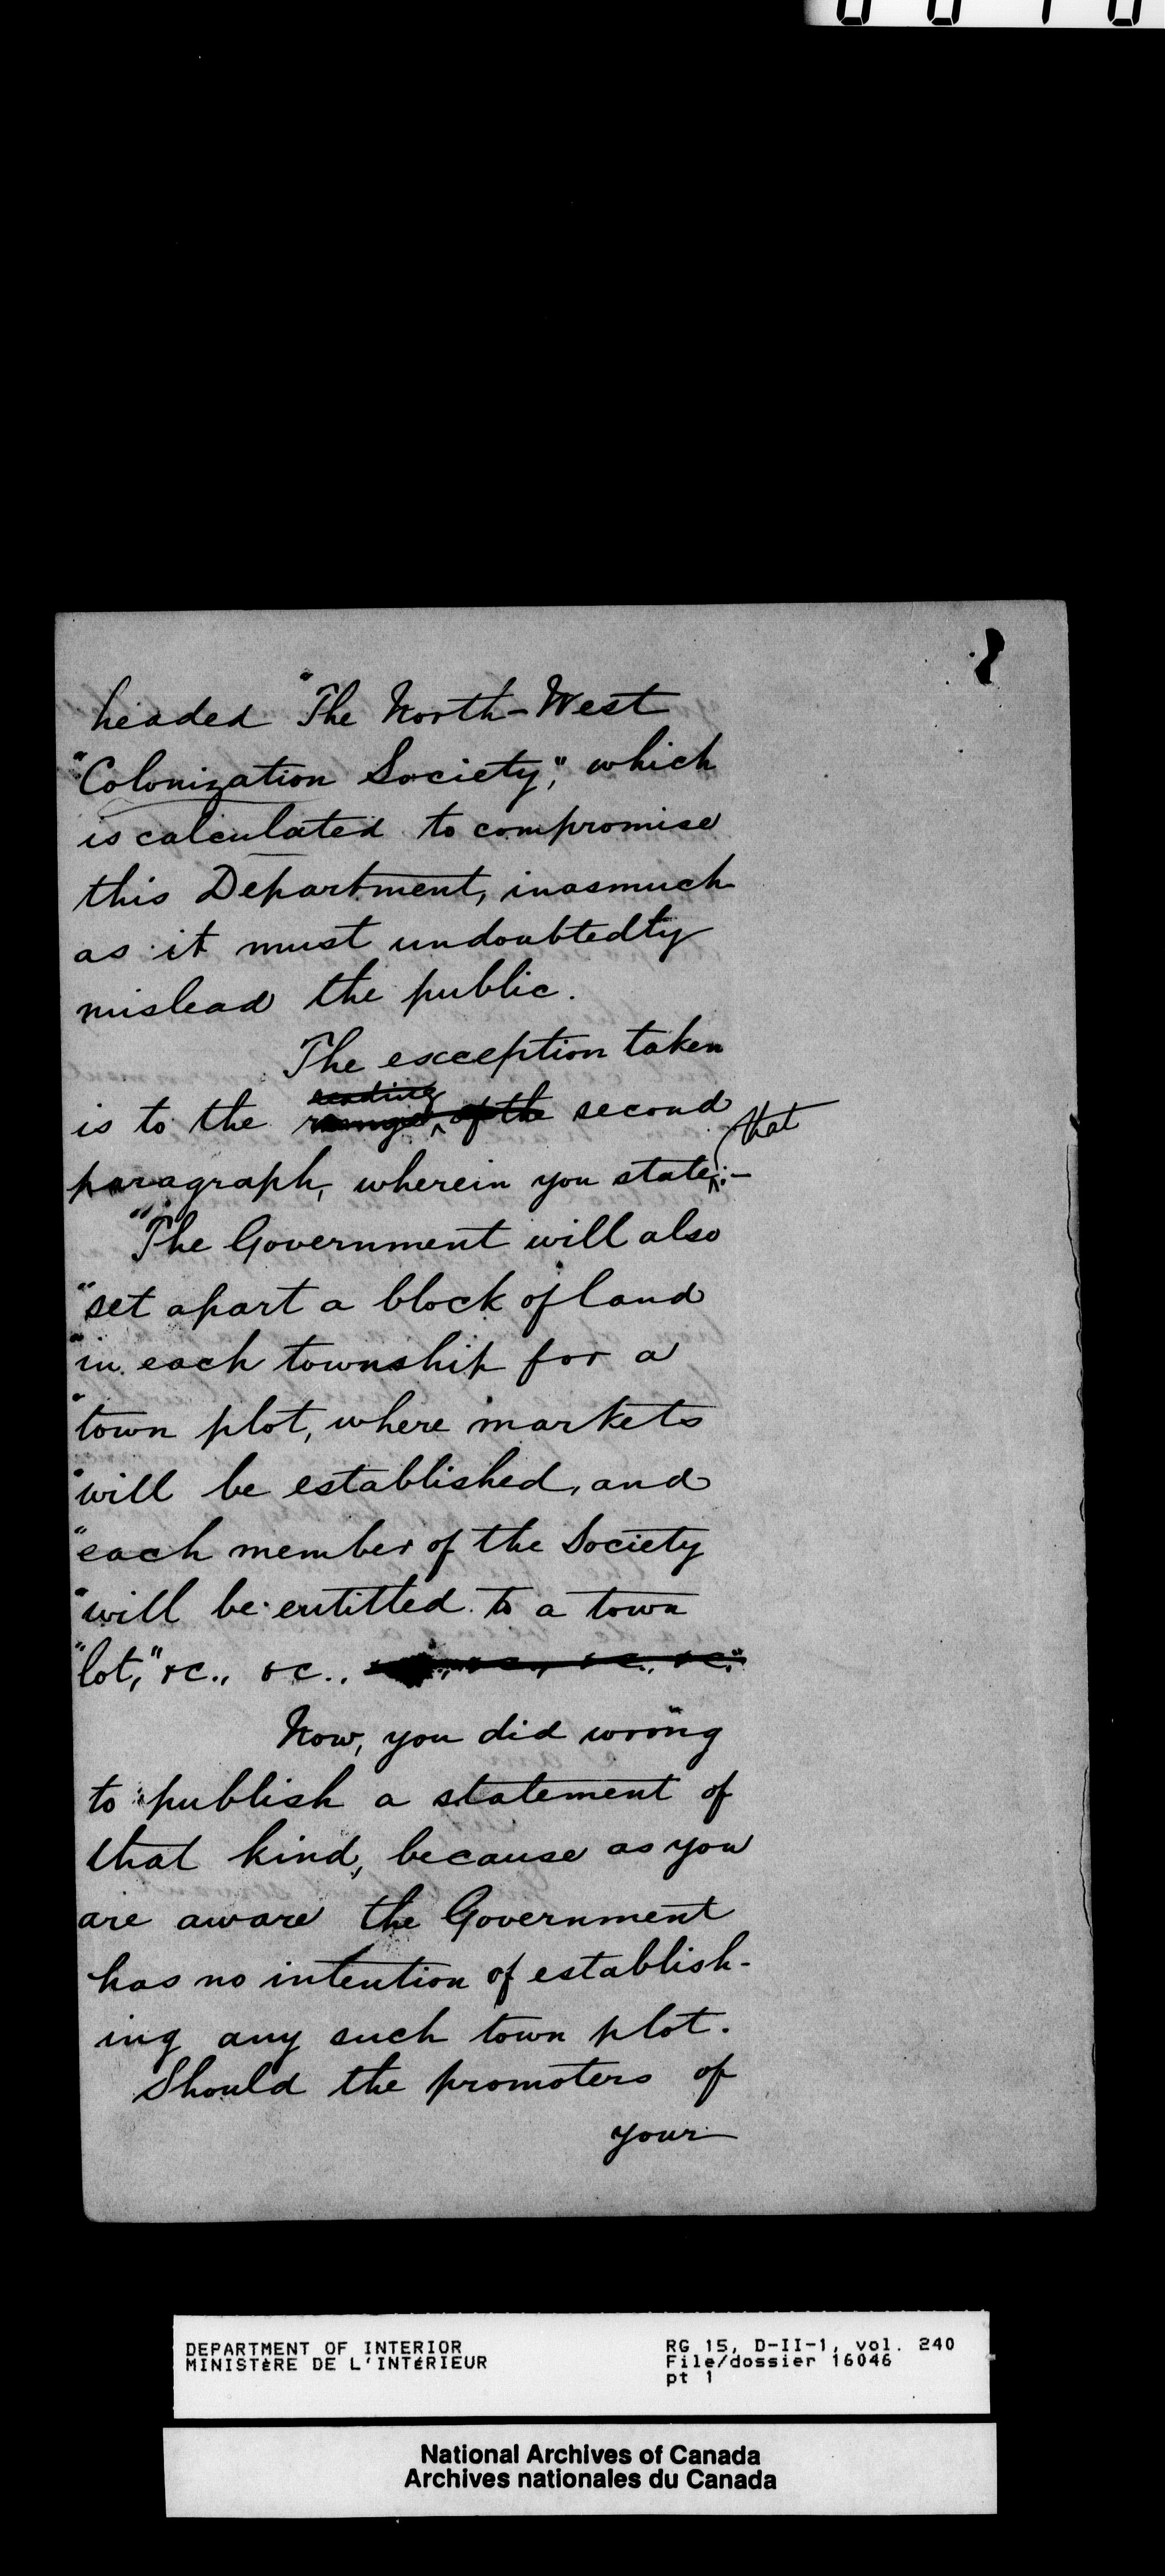 headed "The North-West
"Colonization Society," which
is calculated to compromise
this Department, inasmuch
as it must undoubtedly
mislead the public.
The exception taken
reading
is to the of the second
that
paragraph, wherein you state:-
"The Government will also
"set apart a block of land
"in each township for a
"town plot, where markets
"will be established, and
"each member of the Society
"will be entitled to a town
"lot," &c., &c.,
Now, you did wrong
to publish a statement of
that kind, because as you
are aware the Government
has no intention of establish-
ing any such town plot.
Should the promoters of
your
DEPARTMENT OF INTERIOR
MINISTÈRE DE L'INTÉRIEUR
RG 15, D-II-1, vol. 240
File/dossier 16046
pt 1
National Archives of Canada
Archives nationales du Canada